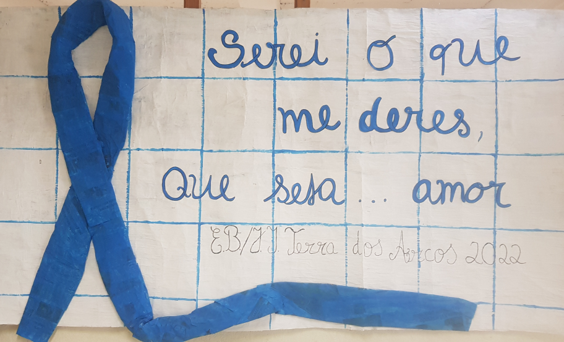 Serei o que
me deres,
Que seja... amor
EB/JI Terra dos Arcos 2022